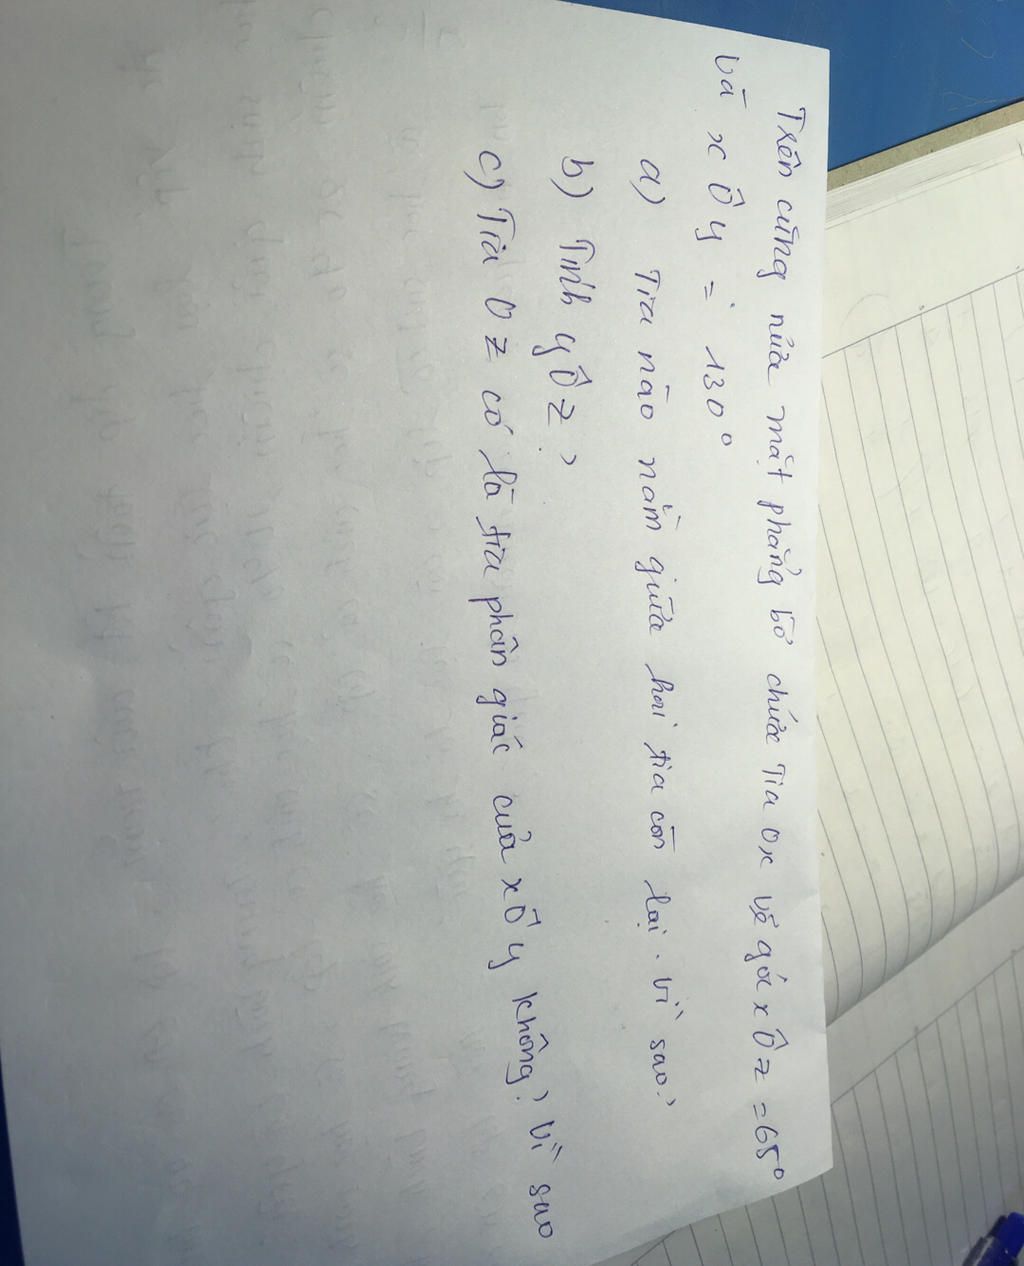 Trên cùng nửa mặt phẳng bờ chứa Tia Ox vẽ góc xÔz = 65°
và xÔy = 130°
a) Tia nào nằm giữa hai tia còn lại. Vì sao?
b) Tính yÔz?
c) Tia Oz có là tia phân giác của xÔy không? Vì sao